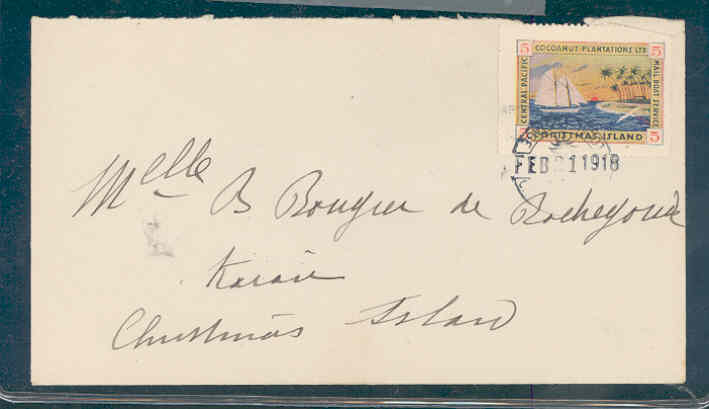 5 COCOANUT PLANTATIONS LTD 5
CENTRAL PACIFIC
MAIL BOAT SERVICE
5 CHRISTMAS ISLAND 5
FEB 21 1918
Mlle B Bougier de Rochegoude
Christmas Island